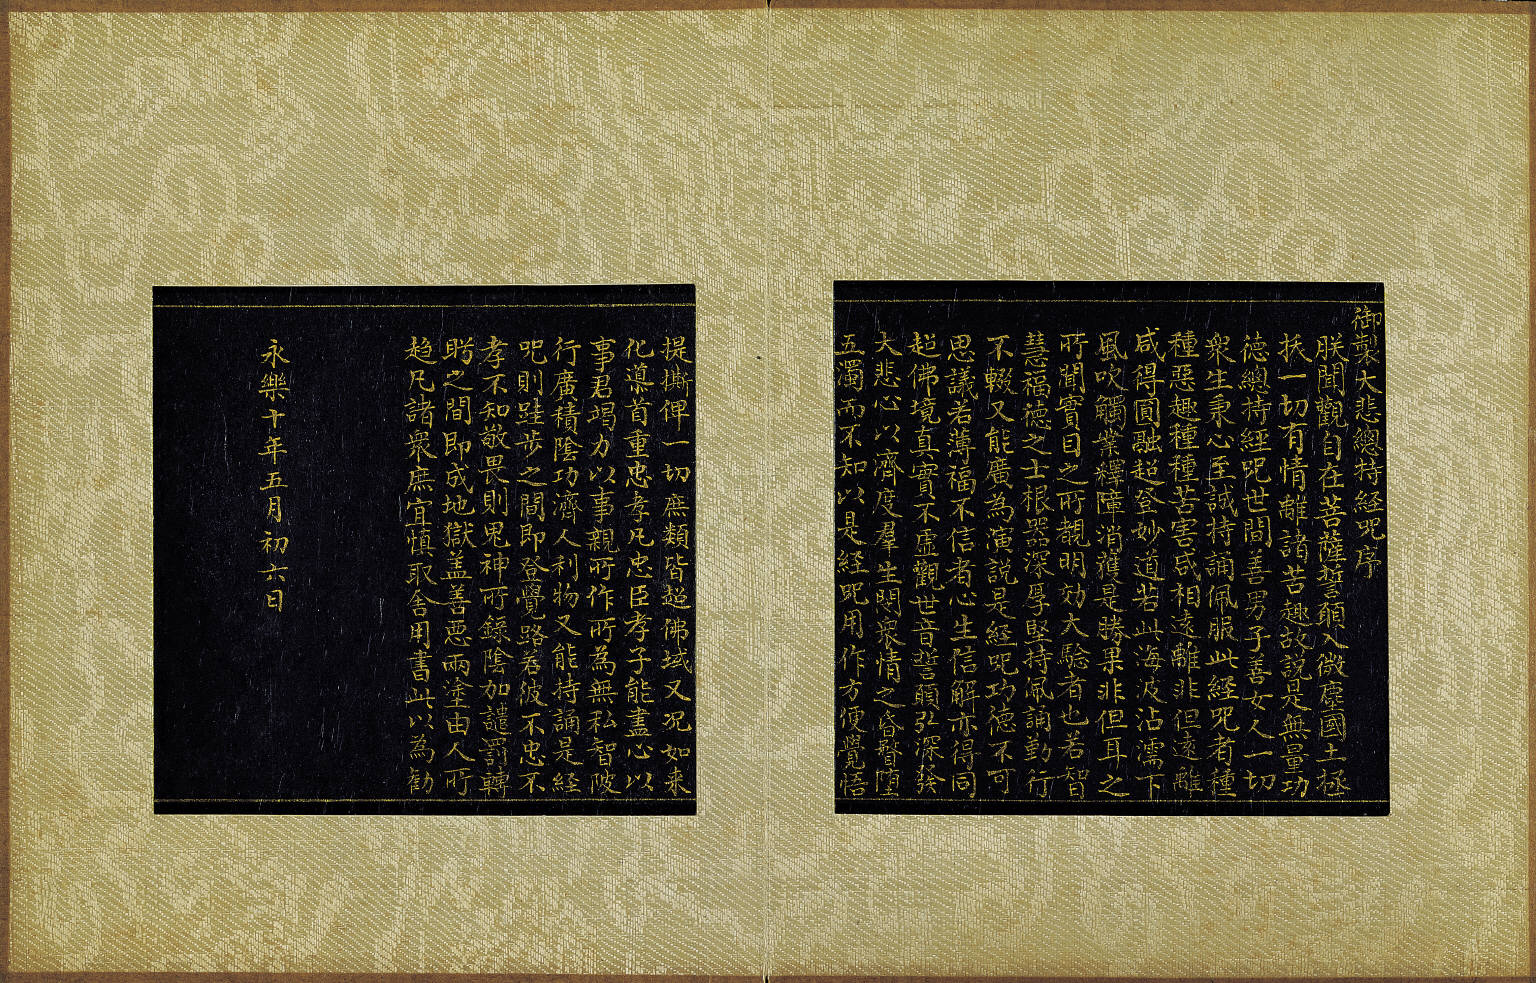 御製大悲總持經咒序
朕聞觀自在菩薩誓願入微塵國土拯
扶一切有情離諸苦趣故説是無量功
德總持經咒世間善男子善女人一切
衆生秉心至誠持誦佩服此經咒者種
種惡趣種種苦害咸相遠離非但遠離
咸得圓融超登妙道若此海波沾濡下
風吹觸業繹障消獲是勝果非但耳之
所聞實目之所覩明効大驗者也若智
慧福德之士根器深厚堅持佩誦勤行
不輟又能廣為演説是經咒功德不可
思議若薄福不信者心生信解亦得同
超佛境真實不虛觀世音誓願弘深發
大悲心以濟度羣生閔衆情之昏瞀墮
五濁而不知以是經咒用作方便覺悟
提撕俾一切庶類皆超佛域又况如来
化導首重忠孝凡忠臣孝子能盡心以
事君竭力以事親所作所為無私智陂
行廣積陰功濟人利物又能持誦是経
咒則跬步之間即登覺路若彼不忠不
孝不知敬畏則鬼神所録陰加譴罰轉
眄之間即成地獄盖善惡兩塗由人所
趋凡諸衆庶宜慎取舍用書此以為勸
永樂十年五月初六日